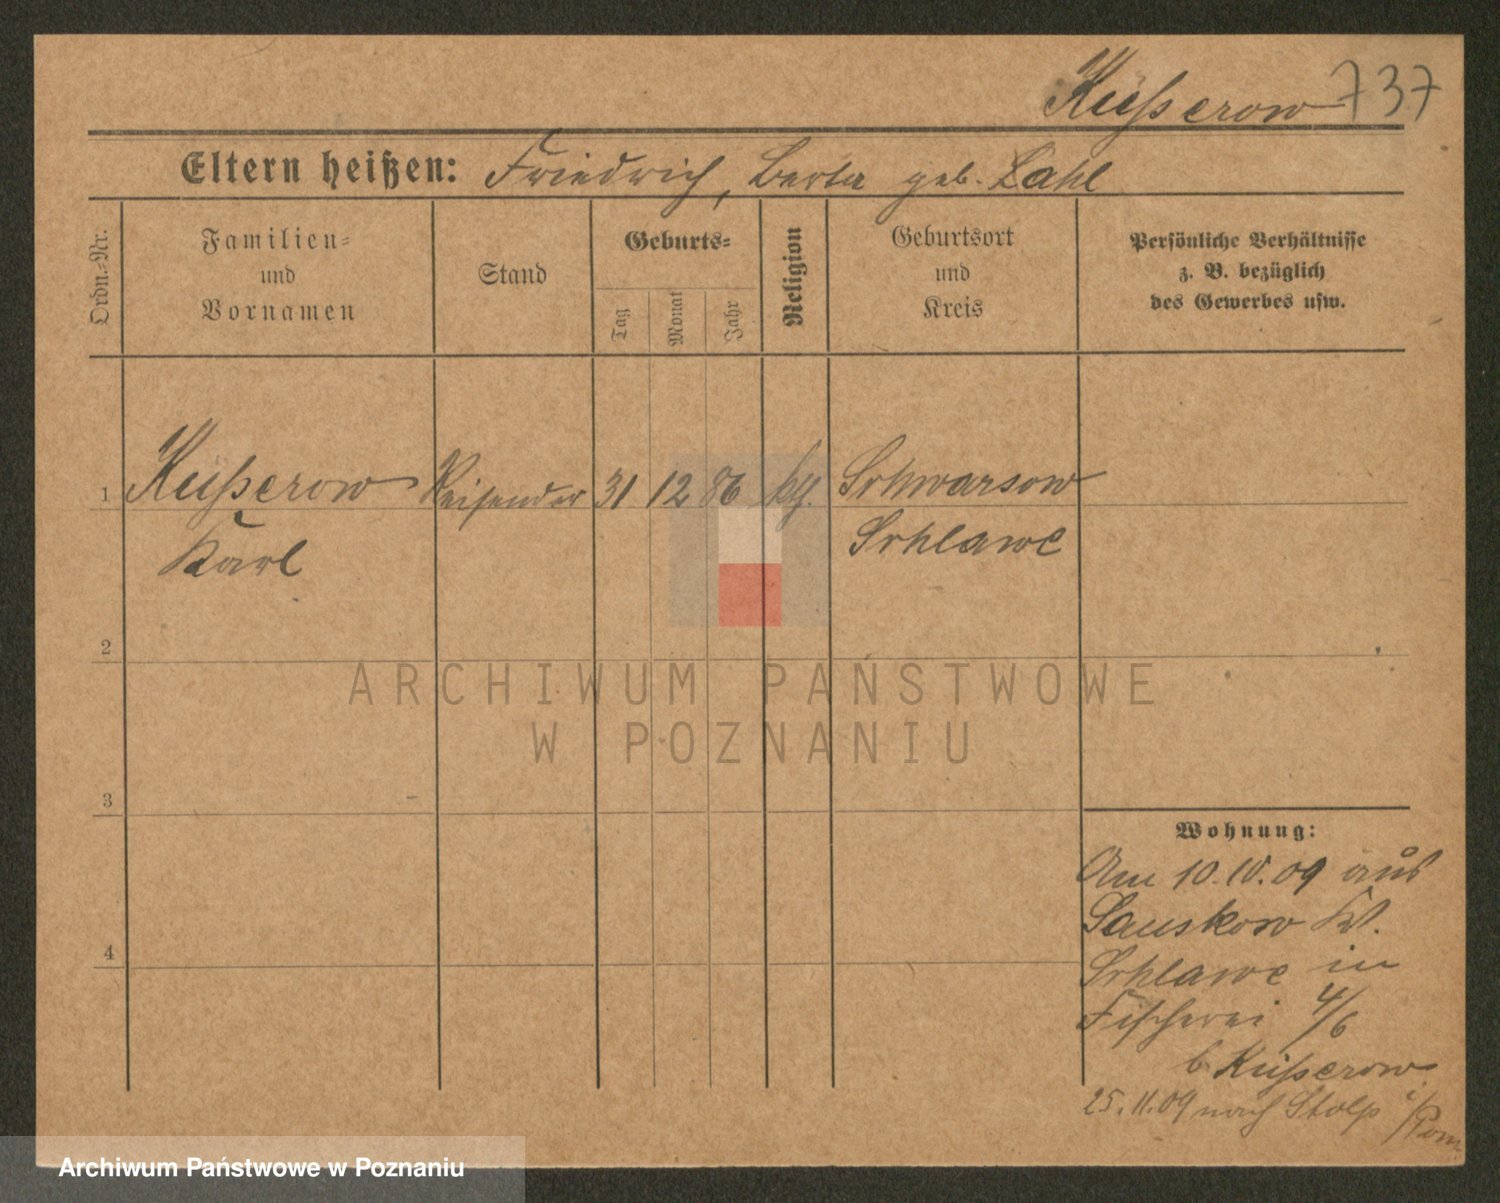 Küsserow 737
Eltern heißen: Friedrich, Berta geb. Zahl
Ordn.-Nr.
Familien-
und
Vornamen
Stand
Geburts-
Tag
Monat
Jahr
Religion
Geburtsort
und
Kreis
Persönliche Verhältnisse
z. B. bezüglich
des Gewerbes usw.
1 Küsserow Reisender 31 12 86 Schwarsow
Karl Schlawe
2
ARCHIWUM PAŃSTWOWE
W POZNANIU
3
Wohnung:
Am 10. IV. 09 aus
Sauskow Kr.
Schlawe in
4
Fischerei 4/6
b Küsserow
25. 11. 09 nach Stolp i/Pom
Archiwum Państwowe w Poznaniu